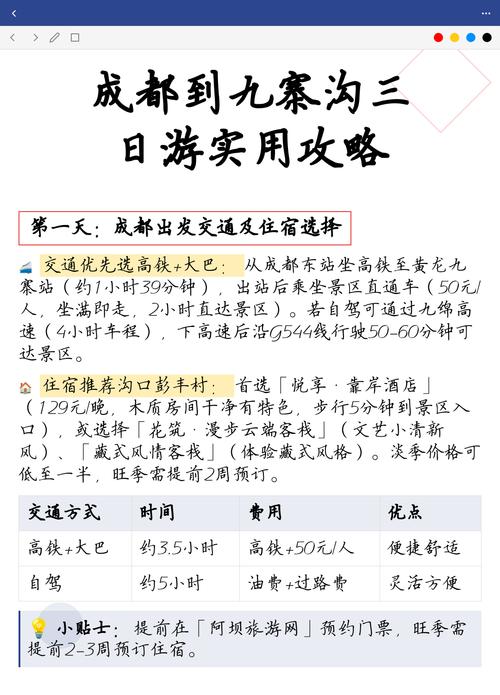 成都到九寨沟三
日游实用攻略
第一天：成都出发交通及住宿选择
🚄 交通优先选高铁+大巴：从成都东站坐高铁至黄龙九
寨站（约1小时39分钟），出站后乘坐景区直通车（50元/
人，坐满即走，2小时直达景区）。若自驾可通过九绵高
速（4小时车程），下高速后沿G544线行驶50-60分钟可
达景区。
🏠 住宿推荐沟口彭丰村：首选「悦享·靠岸酒店」
（129元/晚，木质房间干净有特色，步行5分钟到景区入
口），或选择「花筑·漫步云端客栈」（文艺小清新
风）、「藏式风情客栈」（体验藏式风格）。淡季价格可
低至一半，旺季需提前2周预订。
交通方式 时间 费用 优点
高铁+大巴 约3.5小时 高铁+50元/人 便捷舒适
自驾 约5小时 油费+过路费 灵活方便
💡 小贴士：提前在「阿坝旅游网」预约门票，旺季需
提前2-3周预订住宿。